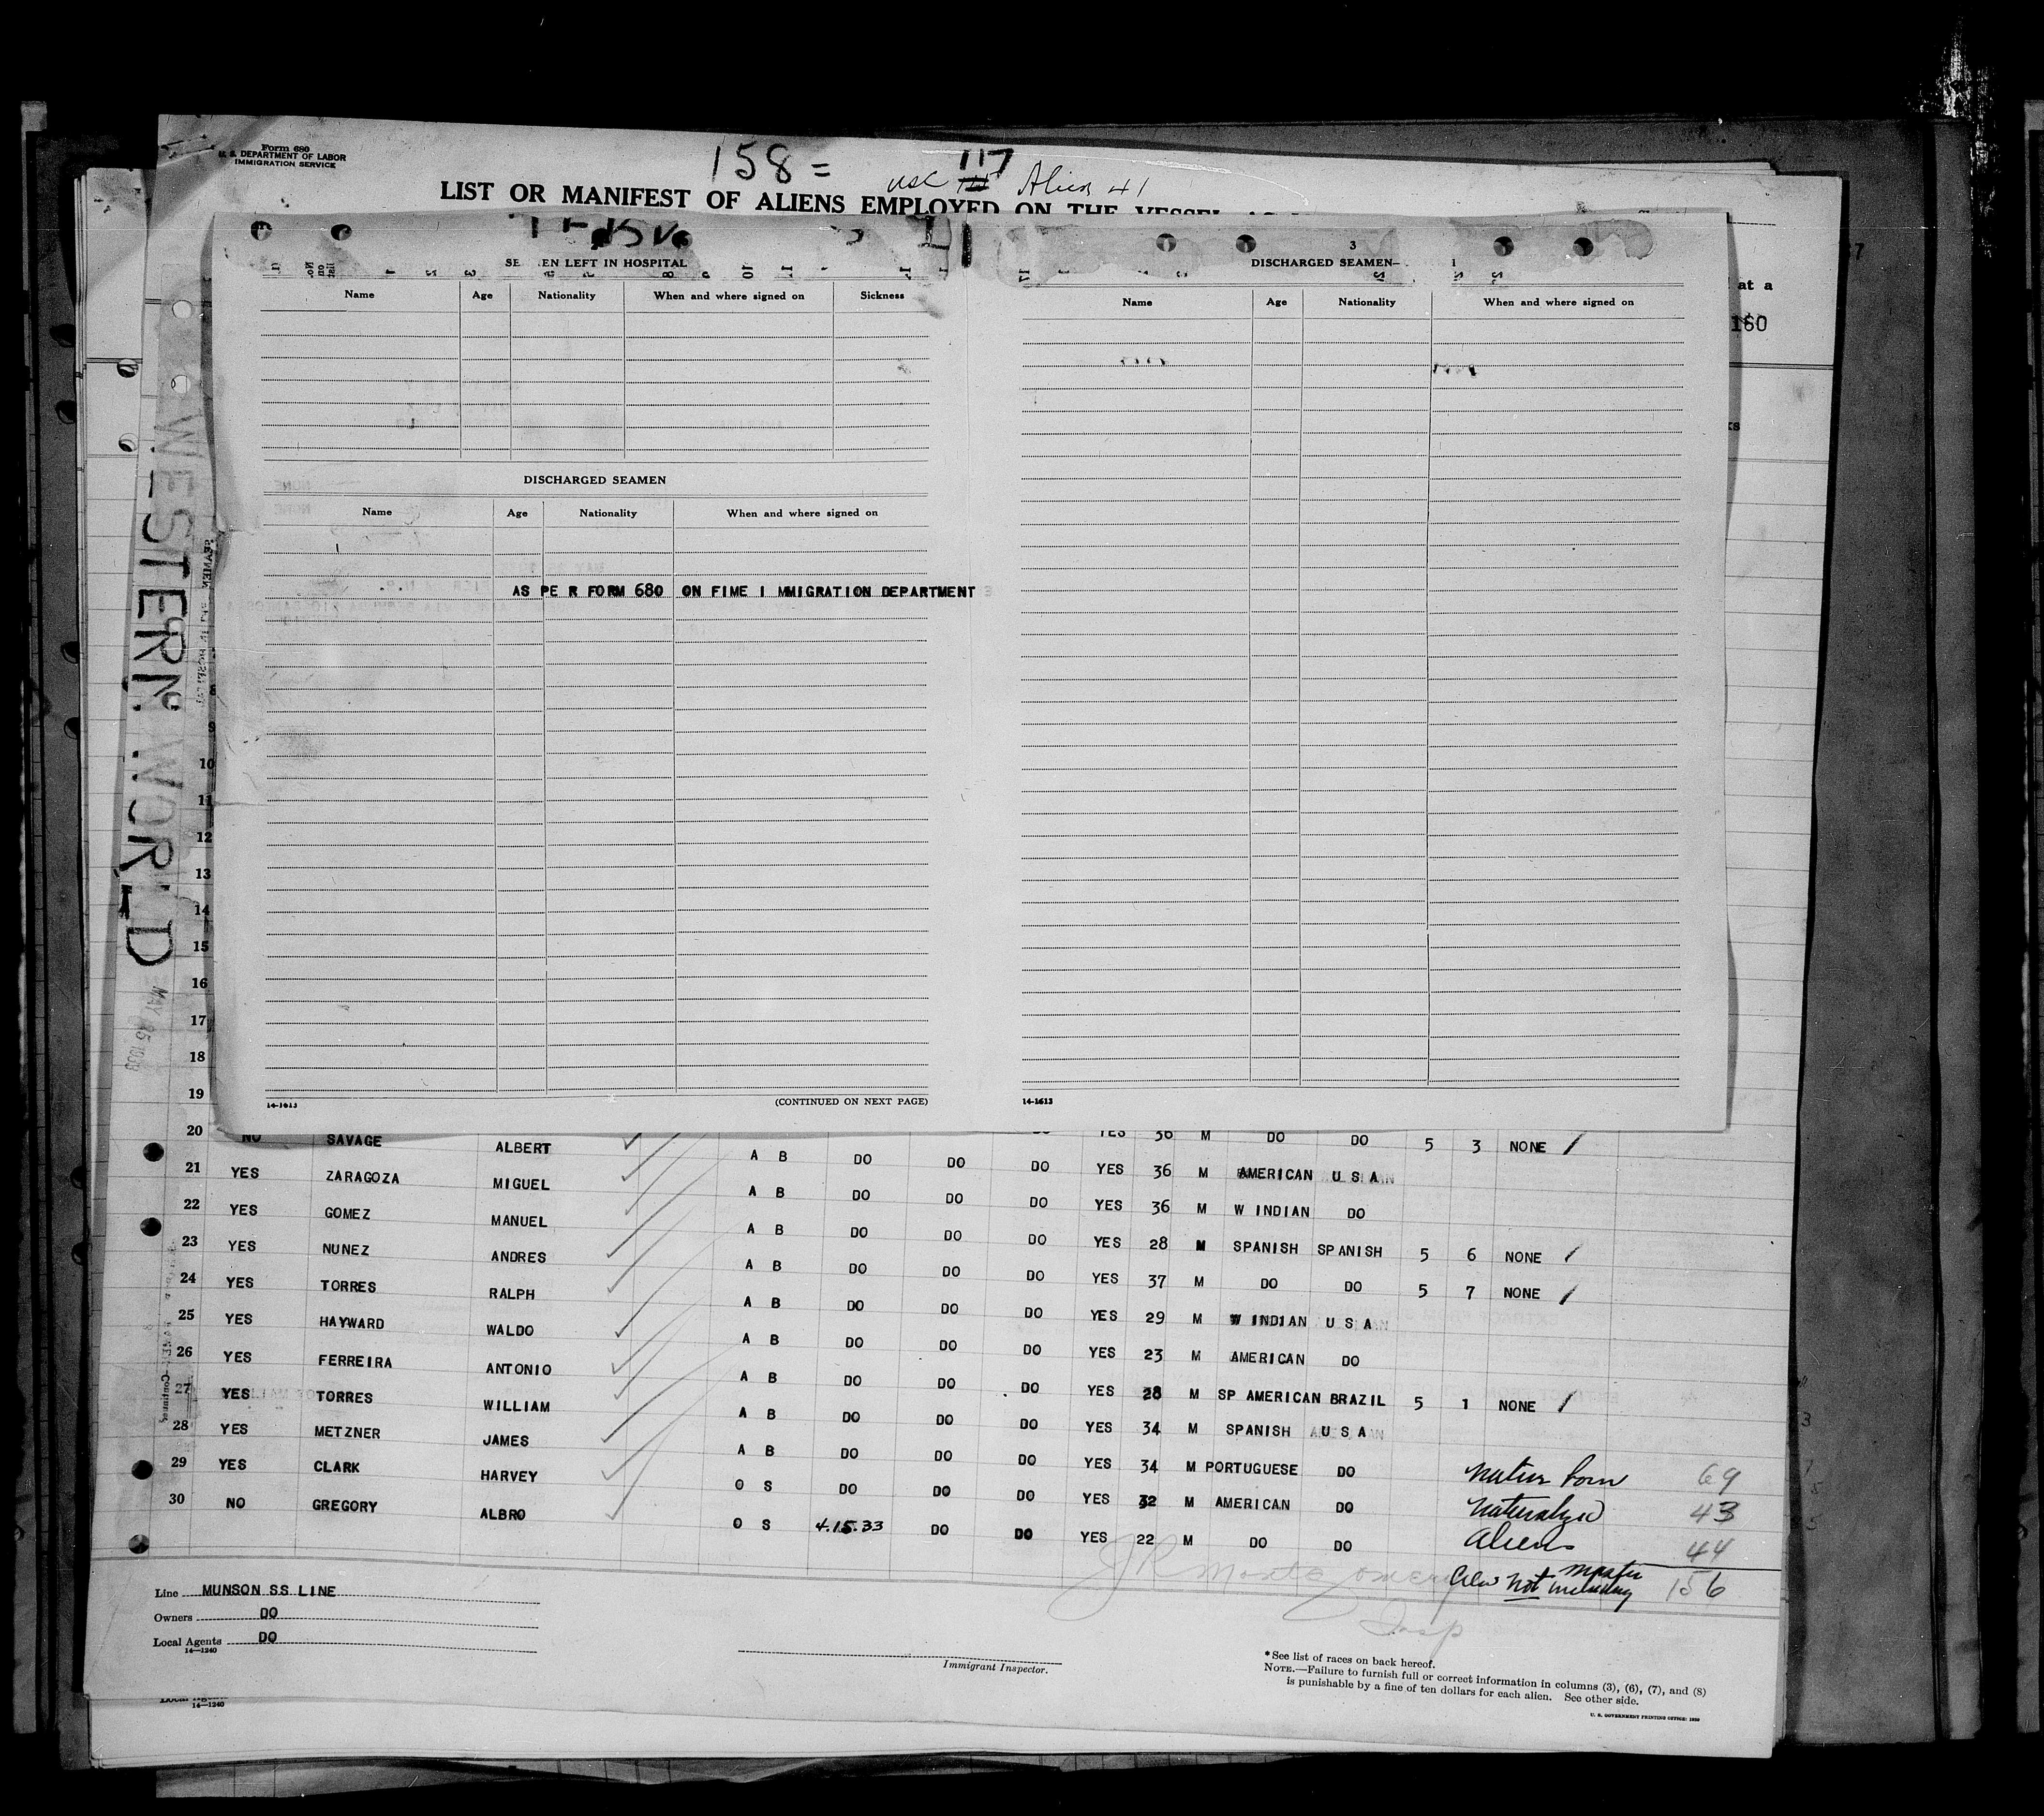 Form 680
U. S. DEPARTMENT OF LABOR
IMMIGRATION SERVICE
158 = USC 117 Aliens 41
LIST OR MANIFEST OF ALIENS EMPLOYED ON THE VESSEL
at a
160
WESTERN WORLD
MAY 25 1933
LEFT IN HOSPITAL
Name Age Nationality When and where signed on Sickness
DISCHARGED SEAMEN
Name Age Nationality When and where signed on
AS PE R FORM 680 ON FIME I MMIGRATION DEPARTMENT
14-1613 (CONTINUED ON NEXT PAGE)
3
DISCHARGED SEAMEN—
Name Age Nationality When and where signed on
14-1613
10
11
12
13
14
15
16
17
18
19
20 NO SAVAGE ALBERT A B DO DO DO YES 36 M DO DO 5 3 NONE /
21 YES ZARAGOZA MIGUEL A B DO DO DO YES 36 M AMERICAN U S A
22 YES GOMEZ MANUEL A B DO DO DO YES 36 M W INDIAN DO
23 YES NUNEZ ANDRES A B DO DO DO YES 28 M SPANISH SPANISH 5 6 NONE /
24 YES TORRES RALPH A B DO DO DO YES 37 M DO DO 5 7 NONE /
25 YES HAYWARD WALDO A B DO DO DO YES 29 M W INDIAN U S A
26 YES FERREIRA ANTONIO A B DO DO DO YES 23 M AMERICAN DO
27 YES TORRES WILLIAM A B DO DO DO YES 28 M SP AMERICAN BRAZIL 5 1 NONE /
28 YES METZNER JAMES A B DO DO DO YES 34 M SPANISH U S A
29 YES CLARK HARVEY O S DO DO DO YES 34 M PORTUGUESE DO
30 NO GREGORY ALBRO O S 4.15.33 DO DO YES 32 M AMERICAN DO
YES 22 M DO DO
Native born 69
Naturalized 43
Aliens 44
Crew not including Master 156
J R Montgomery
Insp
Line MUNSON S.S. LINE
Owners DO
Local Agents DO
14—1240
Immigrant Inspector.
* See list of races on back hereof.
NOTE.—Failure to furnish full or correct information in columns (3), (6), (7), and (8)
is punishable by a fine of ten dollars for each alien. See other side.
U. S. GOVERNMENT PRINTING OFFICE: 1930
14—1240